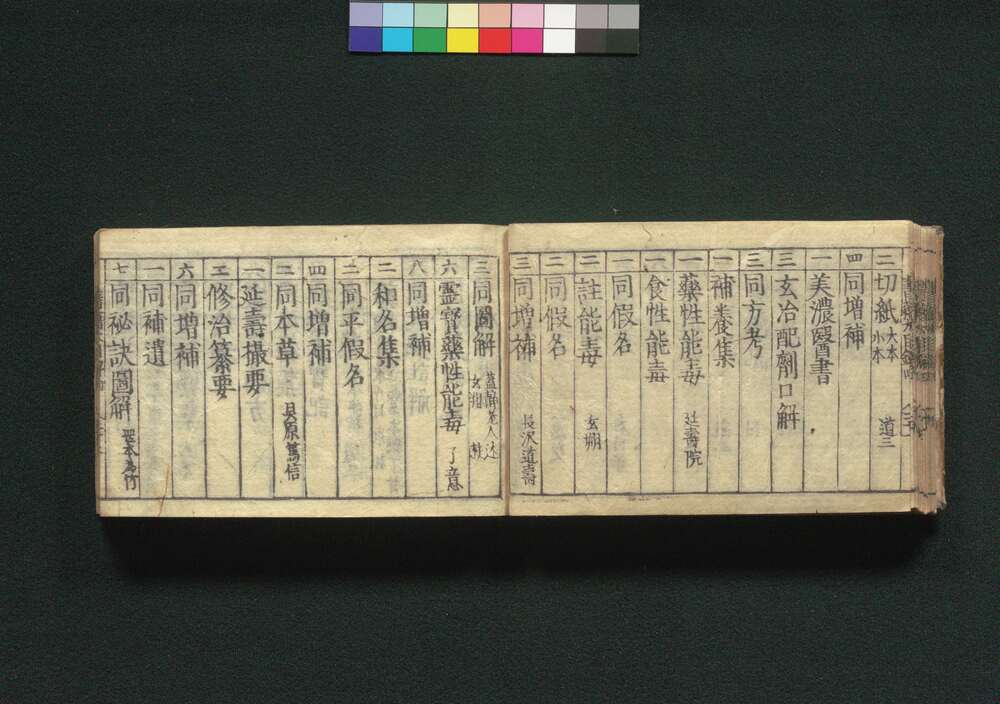 三 切紙 大本 小本 道三
四 同増補
一 美濃醫書
三 玄冶配劑口解
三 同方考
一 補養集
一 藥性能毒 延壽院
一 食性能毒
一 同假名
二 註能毒 玄朔
二 同假名
三 同増補 長沢道壽
三 同圖解
六 靈寳藥性能毒 了意
八 同増補
二 和名集
二 同平假名
四 同増補
二 同本草 貝原篤信
一 延壽撮要
二 修治纂要
六 同増補
一 同補遺
七 同祕訣圖解 岡本為竹